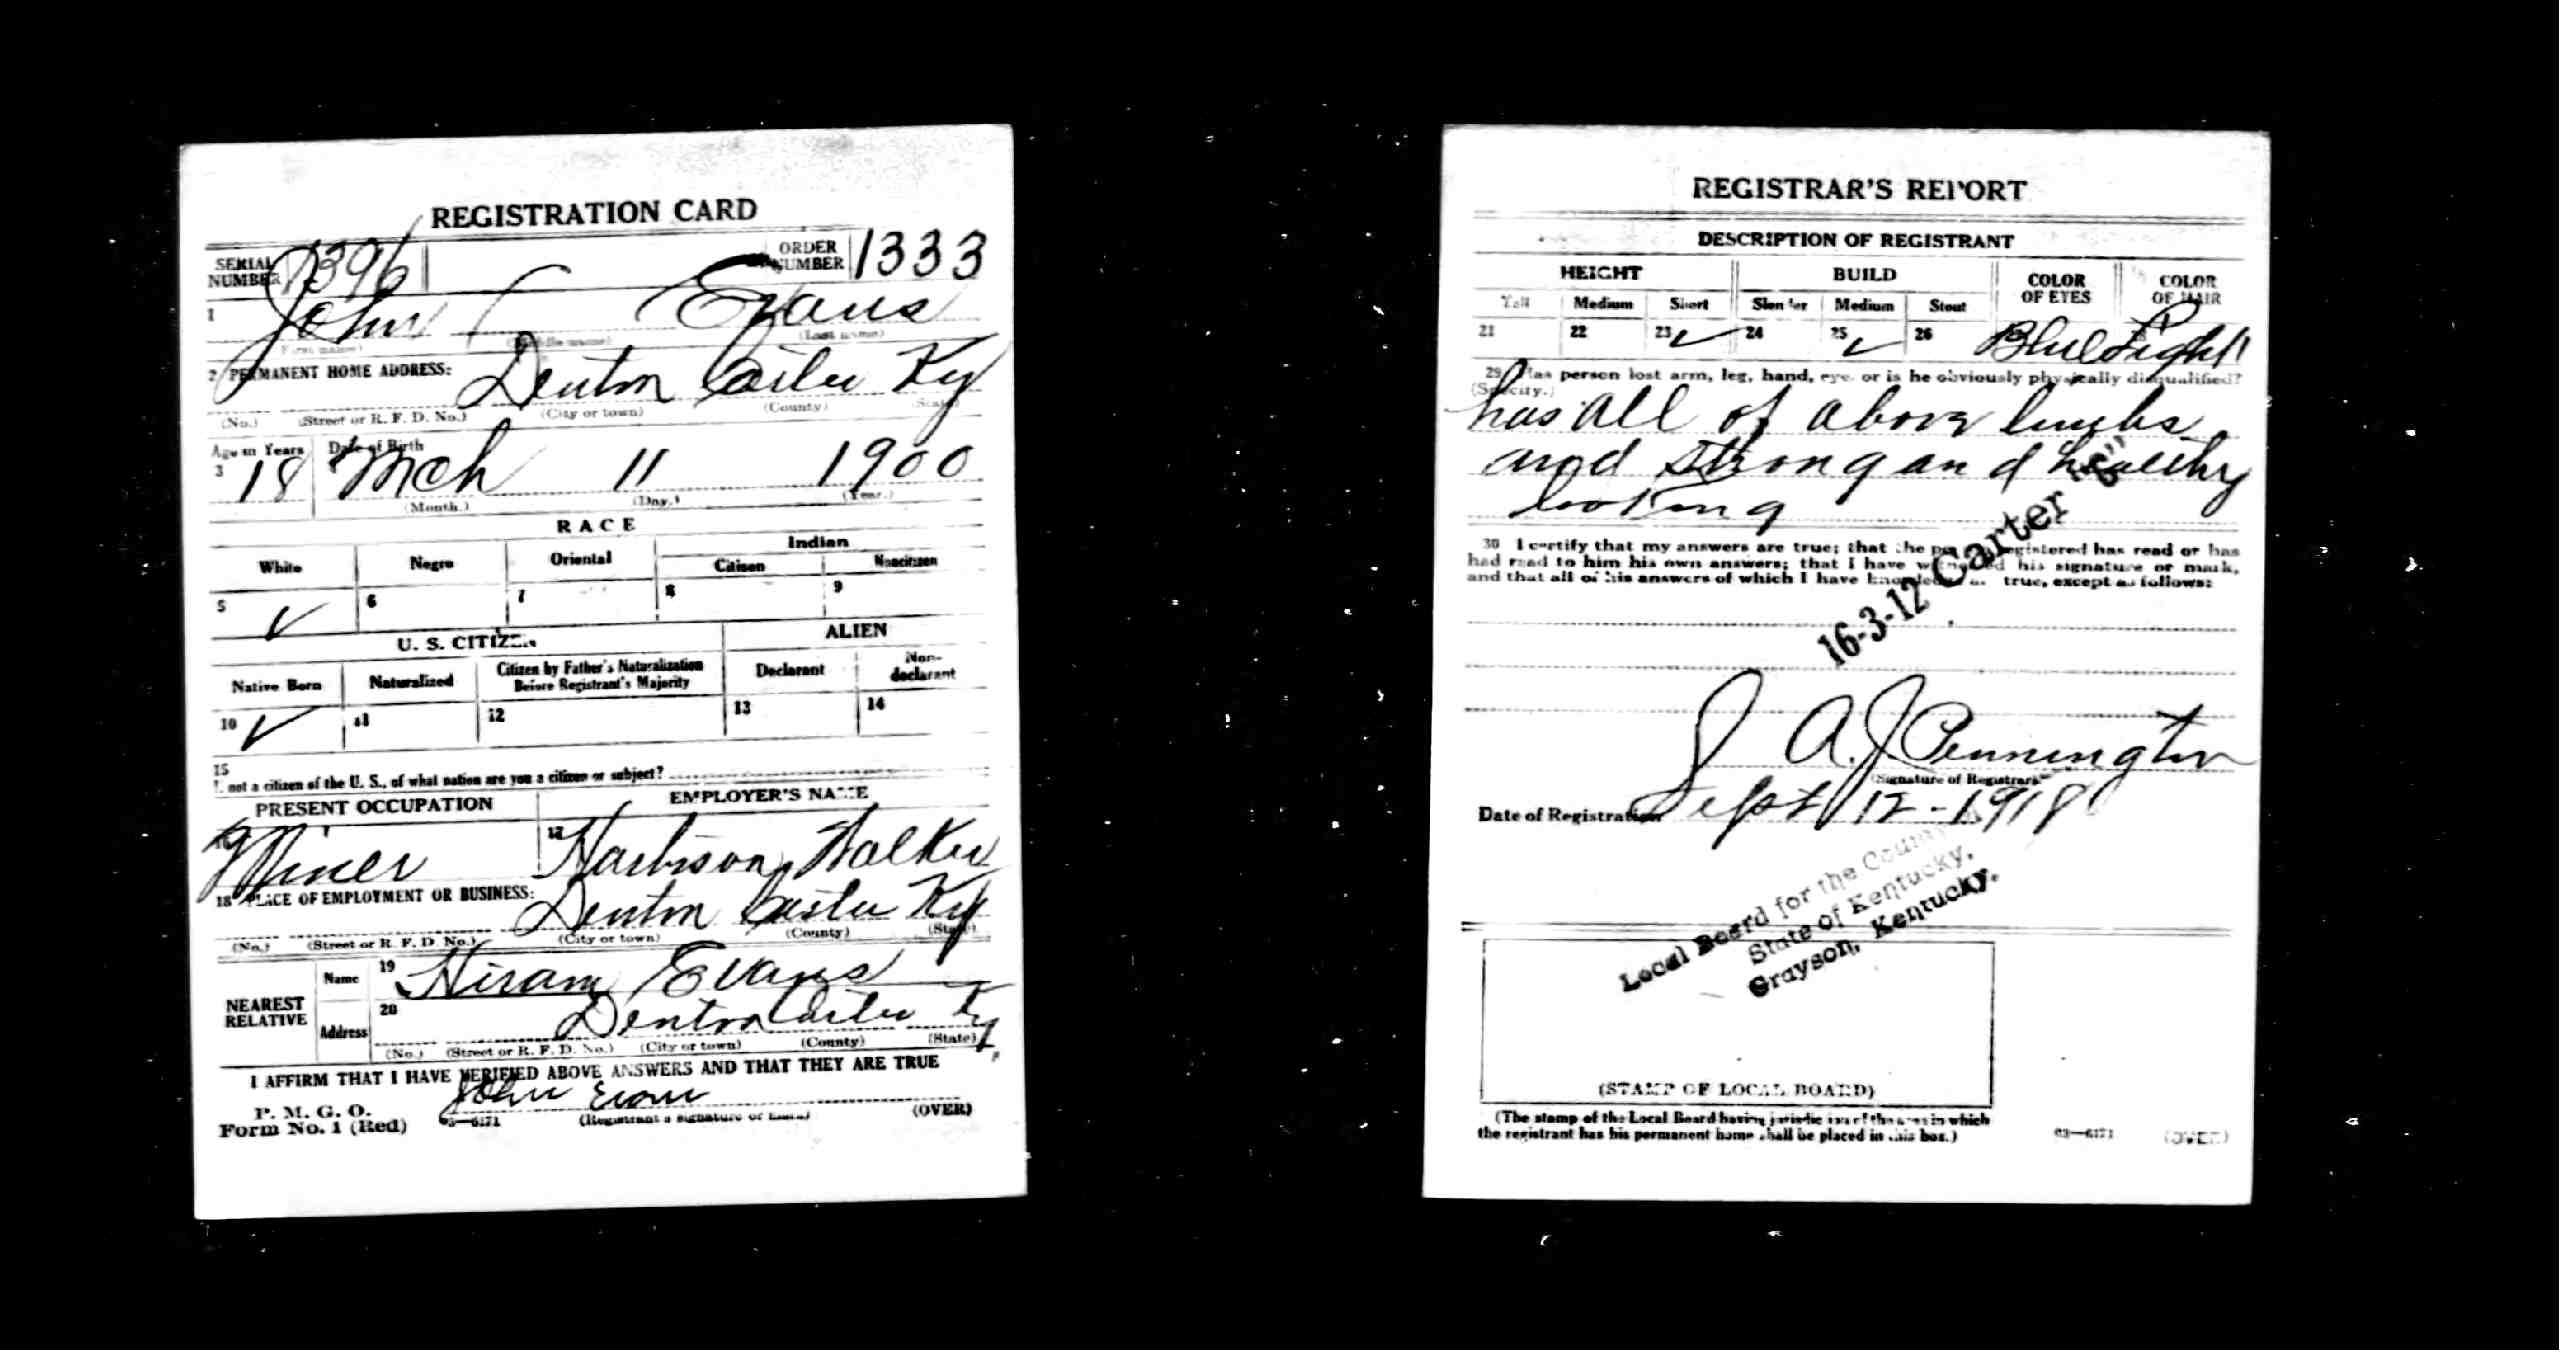 REGISTRATION CARD
SERIAL NUMBER 1396 ORDER NUMBER 1333
1 John C Evans
(First name) (Middle name) (Last name)
2 PERMANENT HOME ADDRESS: Denton Carter Ky
(No.) (Street or R. F. D. No.) (City or town) (County) (State)
Age in Years Date of Birth
3 18 Mch 11 1900
(Month.) (Day.) (Year.)
RACE
White Negro Oriental Indian
Citizen Noncitizen
5 ✓ 6 7 8 9
U. S. CITIZEN ALIEN
Native Born Naturalized Citizen by Father's Naturalization Before Registrant's Majority Declarant Non-declarant
10 ✓ 11 12 13 14
15
If not a citizen of the U. S., of what nation are you a citizen or subject?
PRESENT OCCUPATION EMPLOYER'S NAME
16 Miner 17 Harbison, Walker
18 PLACE OF EMPLOYMENT OR BUSINESS: Denton Carter Ky
(No.) (Street or R. F. D. No.) (City or town) (County) (State)
NEAREST RELATIVE Name 19 Hiram Evans
Address 20 Denton Carter Ky
(No.) (Street or R. F. D. No.) (City or town) (County) (State)
I AFFIRM THAT I HAVE VERIFIED ABOVE ANSWERS AND THAT THEY ARE TRUE
P. M. G. O.
Form No. 1 (Red) John Evans
03—6171 (Registrant's signature or mark) (OVER)
REGISTRAR'S REPORT
DESCRIPTION OF REGISTRANT
HEIGHT BUILD COLOR OF EYES COLOR OF HAIR
Tall Medium Short Slender Medium Stout
21 22 23 ✓ 24 25 ✓ 26 Blue Light
29 Has person lost arm, leg, hand, eye, or is he obviously physically disqualified?
(Specify.)
has all of above limbs
and strong and healthy
looking
30 I certify that my answers are true; that the person registered has read or has
had read to him his own answers; that I have witnessed his signature or mark,
and that all of his answers of which I have knowledge are true, except as follows:
16-3-12 Carter "6"
A. J. Pennington
(Signature of Registrar)
Date of Registration Sept 12 - 1918
Local Board for the County
State of Kentucky,
Grayson, Kentucky.
(STAMP OF LOCAL BOARD)
(The stamp of the Local Board having jurisdiction of the area in which
the registrant has his permanent home shall be placed in this box.)
03—6171 (OVER)